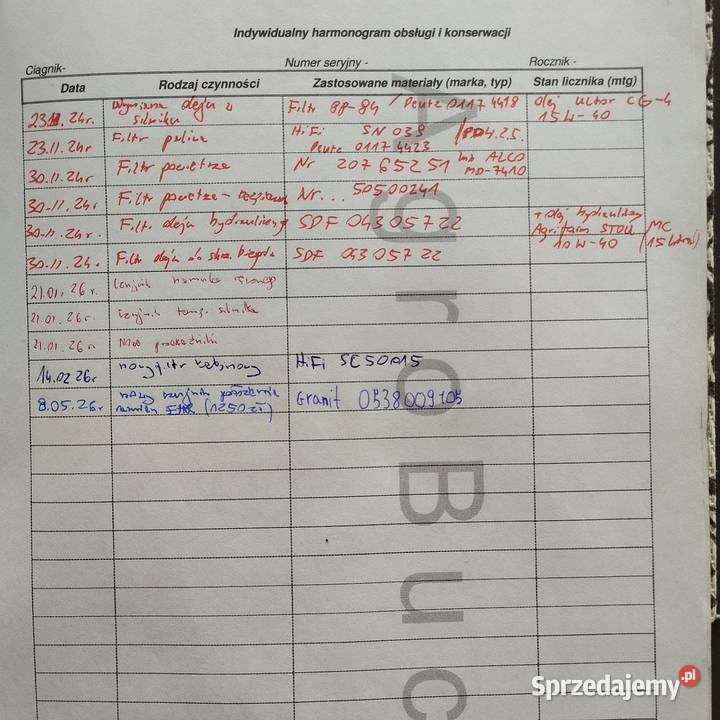 Indywidualny harmonogram obsługi i konserwacji
Ciągnik- Numer seryjny - Rocznik -
Data Rodzaj czynności Zastosowane materiały (marka, typ) Stan licznika (mtg)
23.11.24r. Wymiana oleju w silniku Filtr PP-84 / Deutz 0117 4418 olej CG-4 15W-40
23.11.24r Filtr paliwa HiFi SN 039 / Deutz 0117 4423
30.11.24r Filtr powietrza Nr 207652 51 ALCO MD-7410
30.11.24r Filtr powietrza - Nr... 50500241
30.11.24r. Filtr oleju hydraulicznego SDF 043 057 22 + olej hydrauliczny Agrifarm STOU MC 10W-40
30.11.24. Filtr oleju SDF 043 057 22
21.01.26r. Czujnik
21.01.26r. Czujnik temp. silnika
21.01.26r.
14.02.26r nowy filtr kabinowy HiFi SC50015
8.05.26r nowy czujnik położenia ramion (1250 zł) Granit 0538009105
AgroBuc
Sprzedajemy.pl